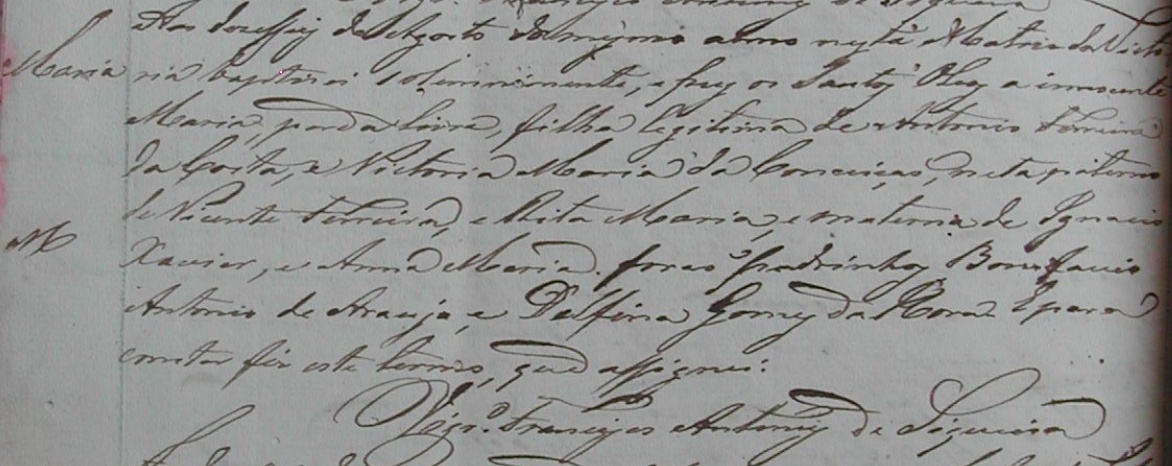 Aos dezesseis de Agosto do mesmo anno nesta Matriz da Victo
Maria
ria baptizei solemnemente, e puz os Santos Oleos a innocente
Maria, parda livre, filha legitima de Antonio Ferreira
da Costa, e Victoria Maria da Conceição, neta paterna
de Vicente Ferreira, e Rita Maria, e materna de Ignacio
M
Xavier, e Anna Maria. forao padrinhos Bonifacio
Antonio de Araujo, e Delfina Gomes da Hora E para
constar fiz este termo, que assignei:
Vigr.º Francisco Antunes de Siqueira